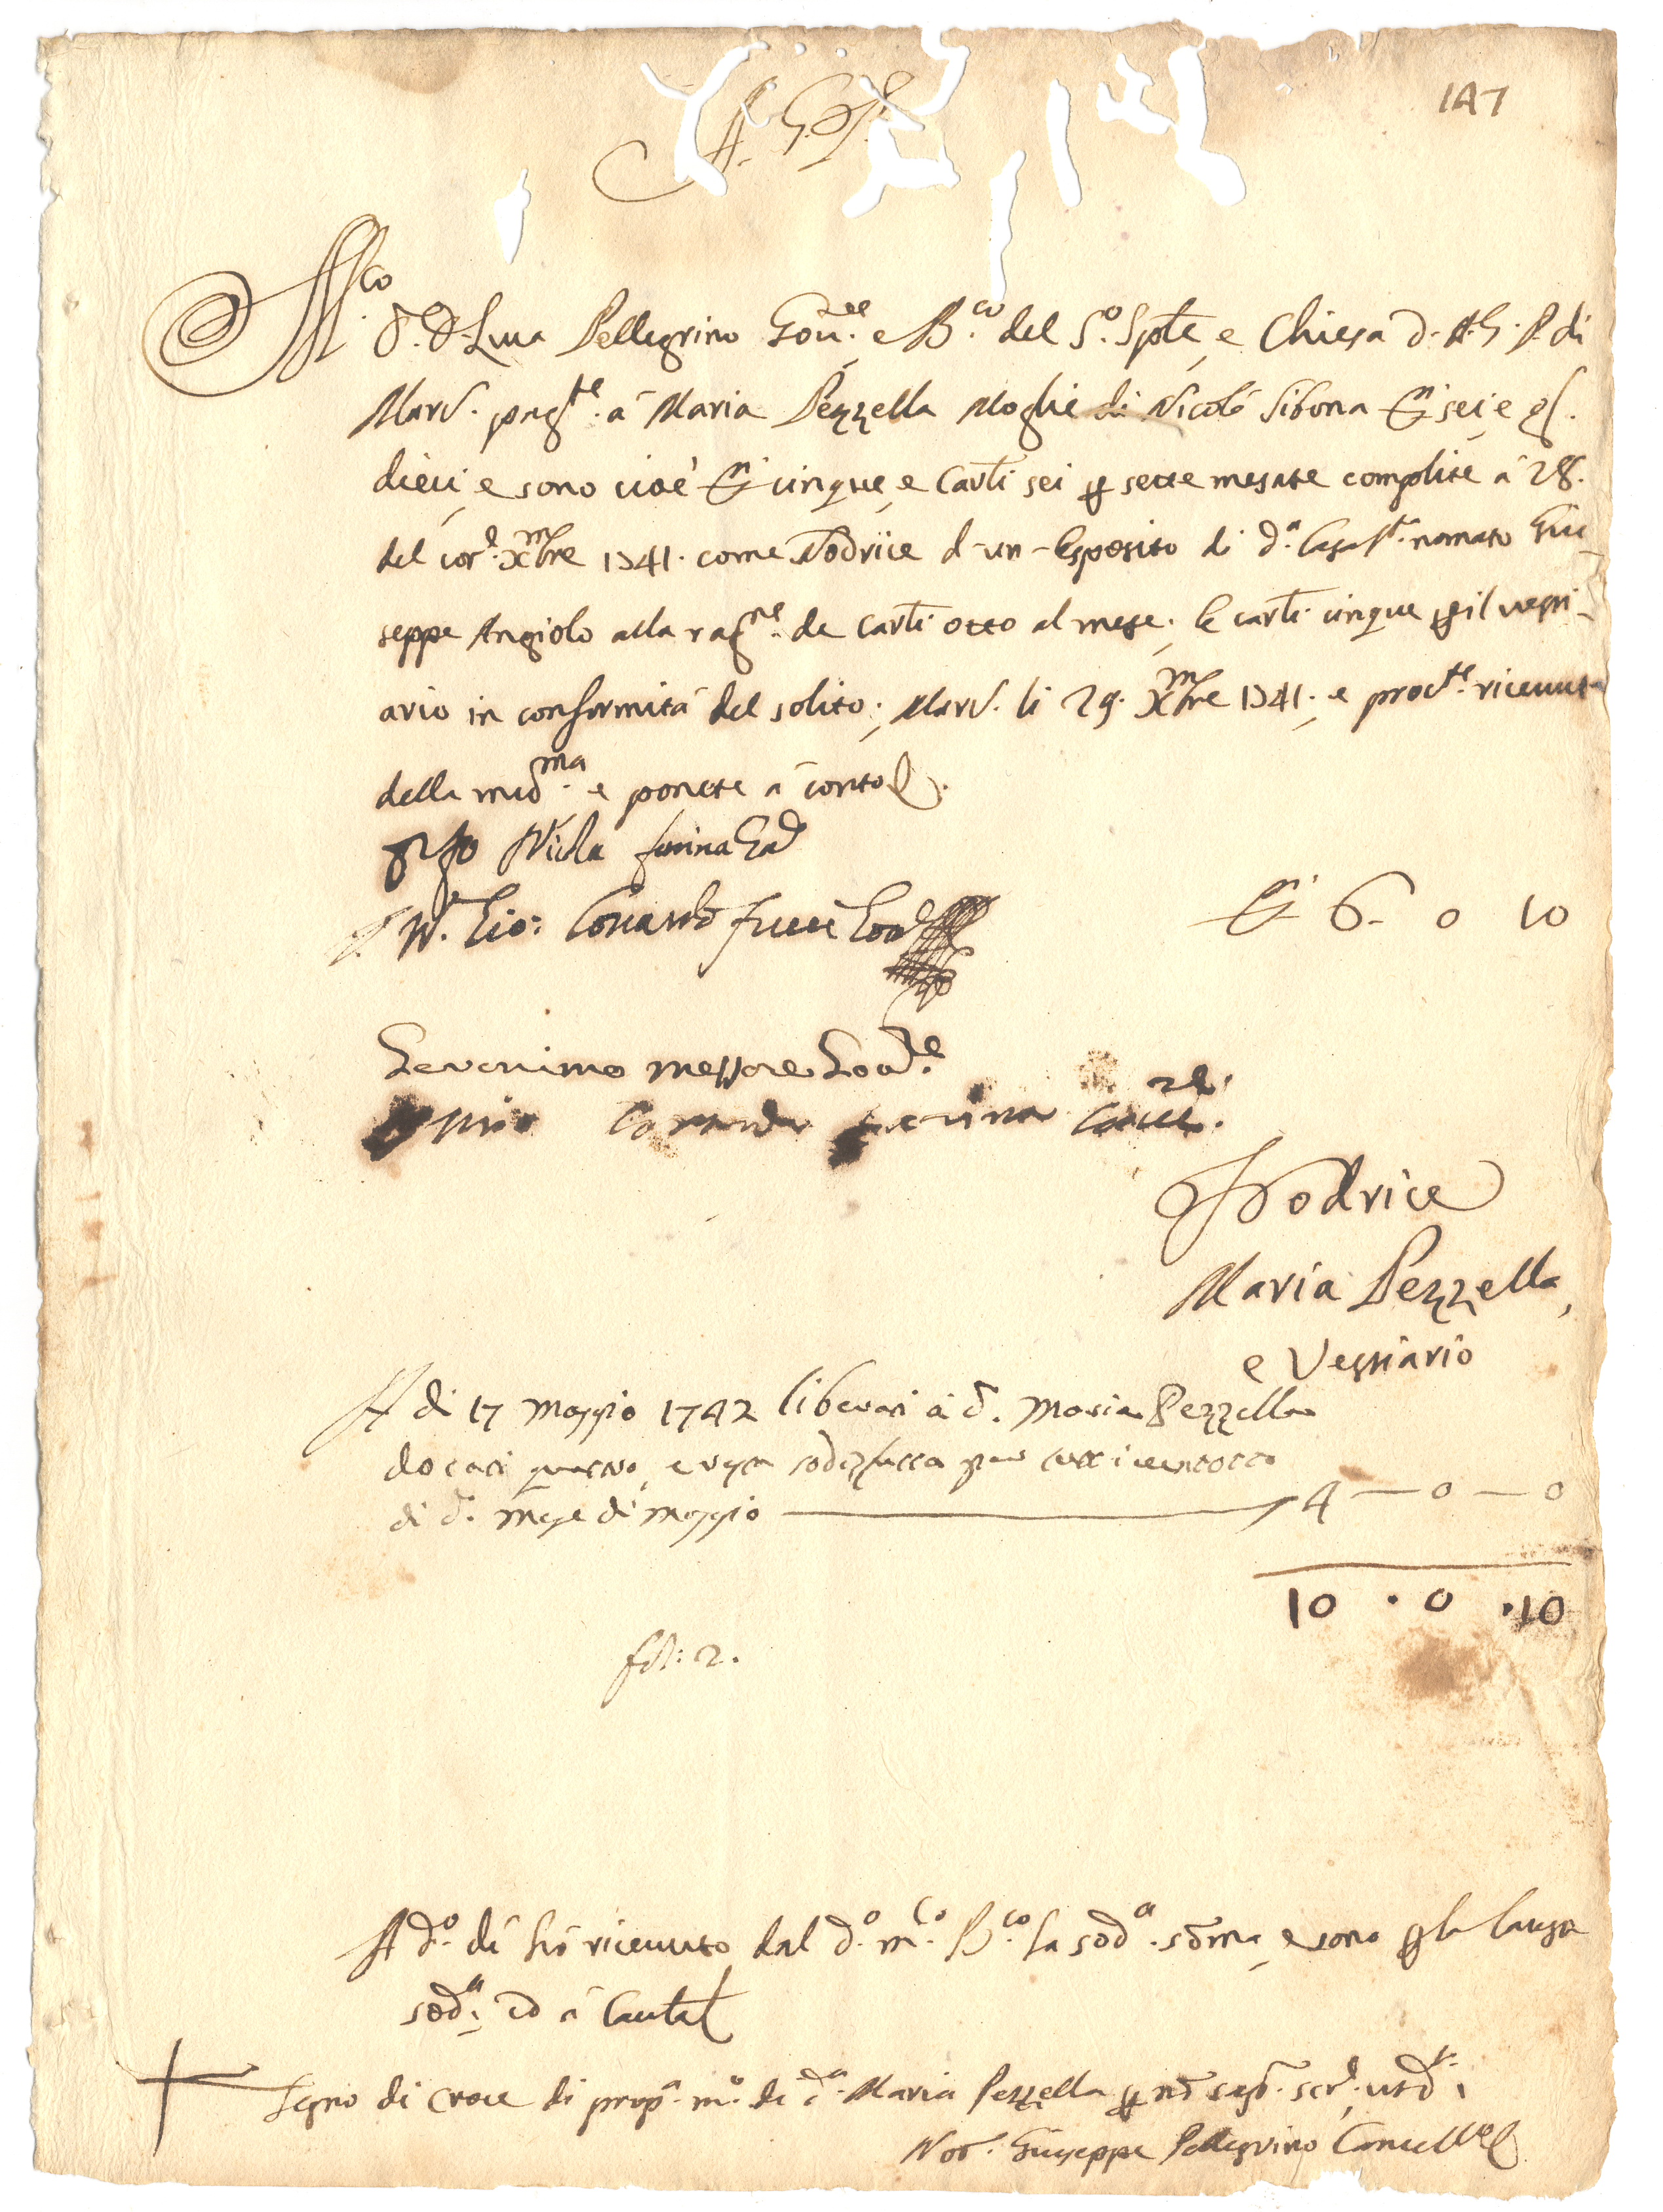 A. G. P.
147
M.co
D. D. Luca Pellegrino Gou.re e B.co del S.o Sple, e Chiesa d. A. G. P. di
Mard. pag.te á Maria Pezzella Moglie di Nicolò Sibona D.i sei, e g.
dieci, e sono cioè D.i cinque, e Carli sei p sette mesate complite á 28.
del cor.e Xmbre 1741. come Nodrice d-un-Esposito di d.a Casa s.ta nomato Giu-
seppe Angiolo alla rag.ne de Carli otto al mese; e carli cinque p il vesti-
ario in conformitá del solito; Mard. li 29. Xmbre 1741; e proc.te riceuuta
della med.ma e ponete á conto
Nicola farina
Geronimo messore Goud.e
D.i 6 - 0 10
Nodrice
Maria Pezzella,
e Vestiario
A di 17 Maggio 1742 liberari à d. Maria Pezzella
docati quattro, e resta sodisfatta per tutti i ventotto
di d. mese di maggio 4 — 0 — 0
10 . 0 . 10
fol: 2.
A d.o dí hó riceuuto dal d.o m.co B.co la sod.a sõma, e sono p la causa
sod.a; ed á Cautal
Segno di Croce di prop.a m.o di d.a Maria Pezzella p nõ sap. scr.e, ut d.r
Not. Giuseppe Pellegrino Cancell.e